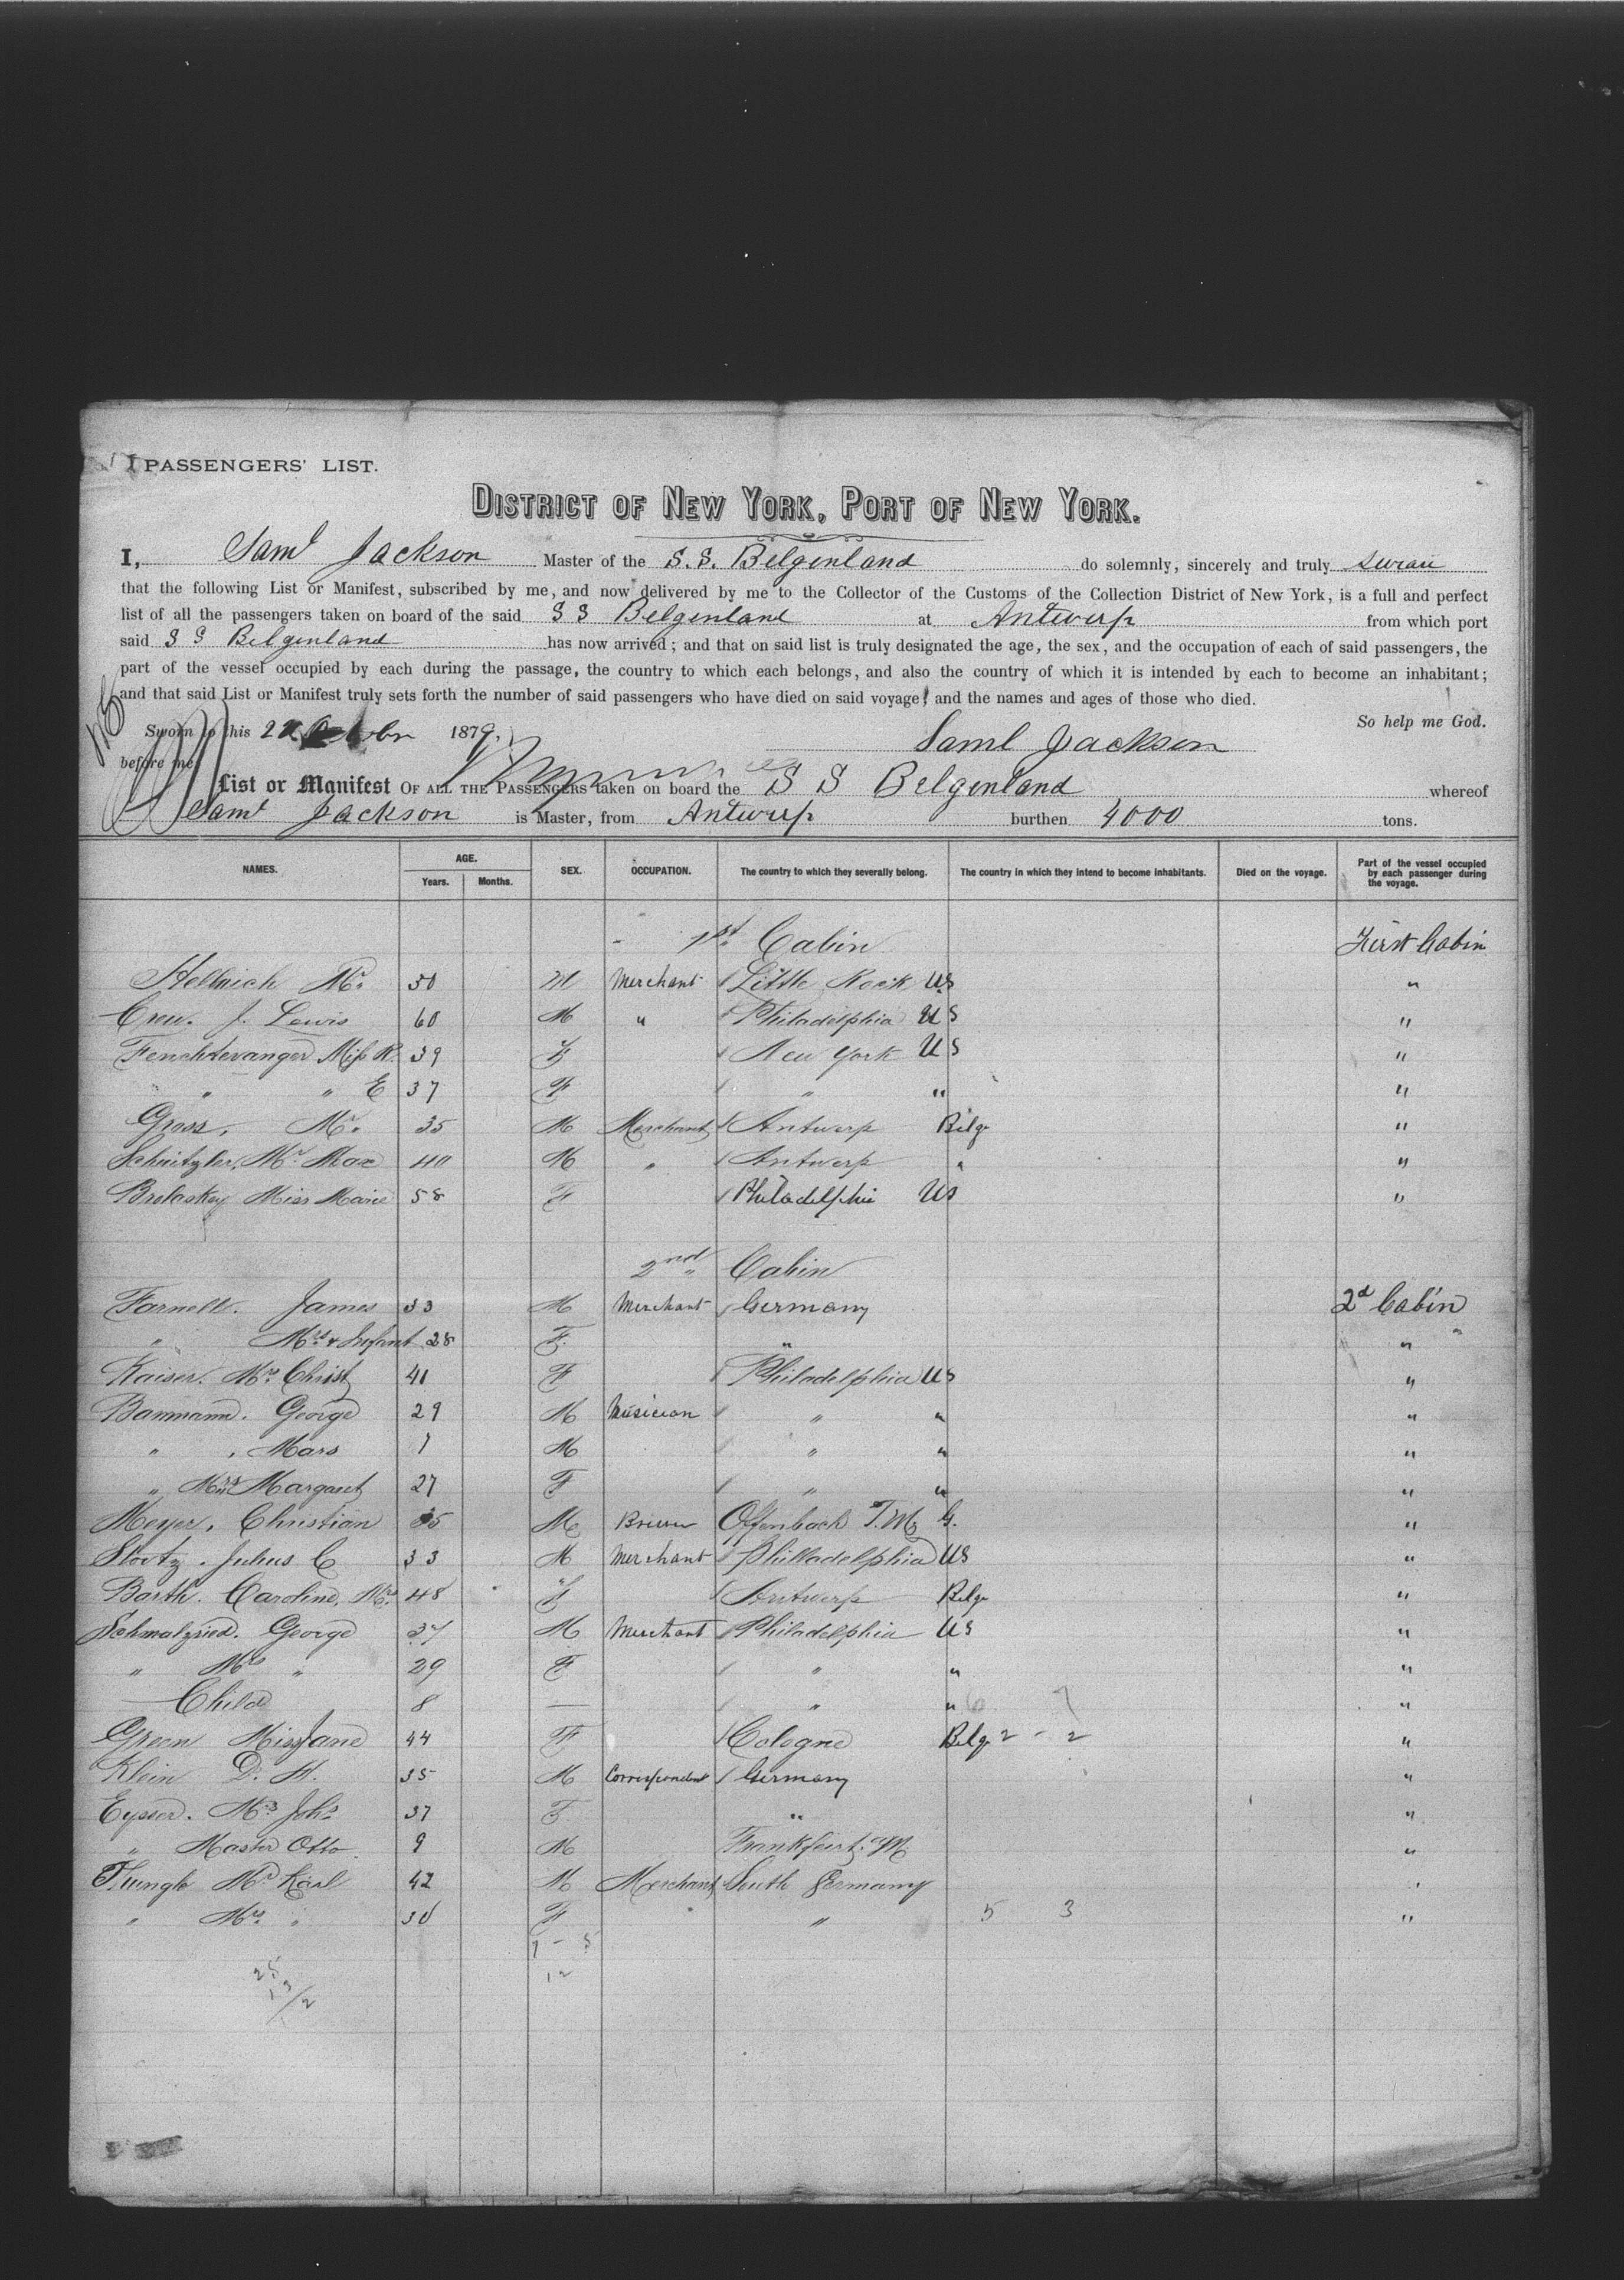 PASSENGERS' LIST.
DISTRICT OF NEW YORK, PORT OF NEW YORK.
I, Saml Jackson Master of the S.S. Belgenland do solemnly, sincerely and truly swear
that the following List or Manifest, subscribed by me, and now delivered by me to the Collector of the Customs of the Collection District of New York, is a full and perfect
list of all the passengers taken on board of the said S S Belgenland at Antwerp from which port
said S S Belgenland has now arrived; and that on said list is truly designated the age, the sex, and the occupation of each of said passengers, the
part of the vessel occupied by each during the passage, the country to which each belongs, and also the country of which it is intended by each to become an inhabitant;
and that said List or Manifest truly sets forth the number of said passengers who have died on said voyage, and the names and ages of those who died.
So help me God.
Sworn to this 22 1879. Saml Jackson
before me
List or Manifest OF ALL THE PASSENGERS taken on board the S S Belgenland whereof
Saml Jackson is Master, from Antwerp burthen 4000 tons.
NAMES. AGE. Years. Months. SEX. OCCUPATION. The country to which they severally belong. The country in which they intend to become inhabitants. Died on the voyage. Part of the vessel occupied by each passenger during the voyage.
1st Cabin First Cabin
Hellnich Mr. 50 M Merchant Little Rock US "
Crew. J. Lewis 60 M " Philadelphia US "
Feuchtevanger Miss R. 39 F New York US "
" " E 37 F " " "
Gross, Mr. 35 M Merchant Antwerp Belg "
Schnitzler, Mr Max 40 M " Antwerp " "
Brolaskey Miss Marie 58 F Philadelphia US "
2nd Cabin
Farnell. James 33 M Merchant Germany 2d Cabin
" Mrs & Infant 28 F. " " "
Kaiser. Mrs Christ 41 F Philadelphia US "
Banmann. George 29 M Musician " " "
" , Mars M " " "
" Mrs Margaret 27 F " " "
Meyer, Christian 35 M Brewer Offenbach G. "
Stootz. Julius C 33 M Merchant Philladelphia US "
Barth. Caroline, Mrs. 48 F Antwerp Belg "
Schmalzried. George 37 M Merchant Philadelphia US "
" Mrs " 29 F " " "
Child 8 — " " 6 7 "
Green Miss Jane 44 F Cologne Belg 2 - 2 "
Klein D. H. 35 M Correspondent Germany "
Eysser. Mrs Johs 37 F " "
" Master Otto 9 M Frankfurt a M "
Mr Karl 42 M Merchant South Germany "
" Mrs " 30 F " 5 3 "
7 - 5
12